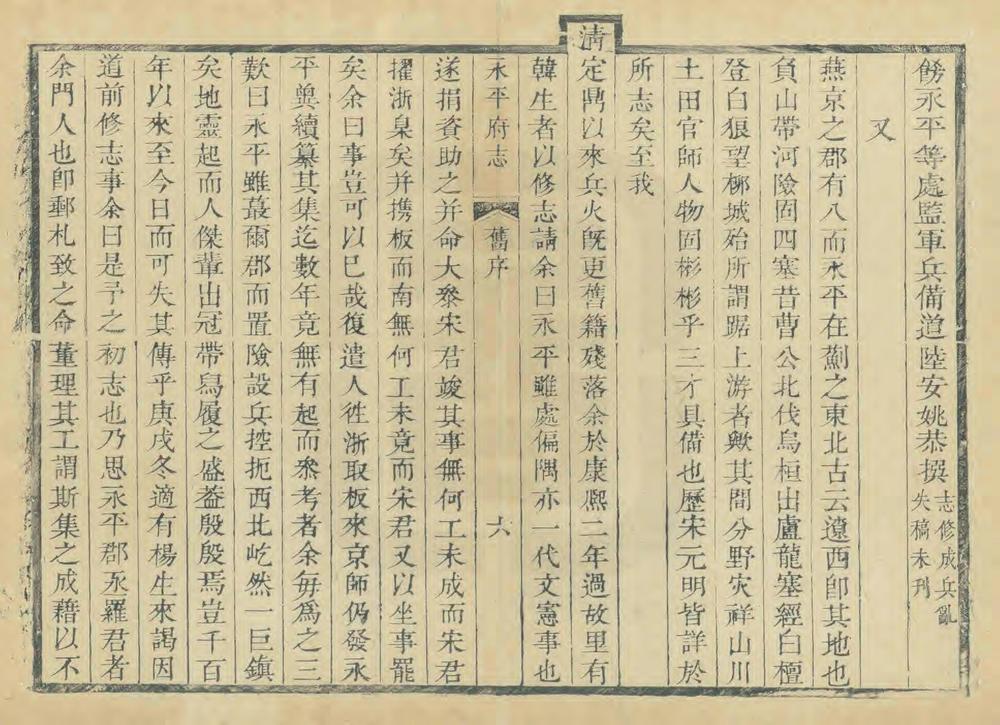 餝永平等處監軍兵備道陸安姚恭撰志修成兵亂
失稿未刋
又
燕京之郡有八而永平在薊之東北古云遠西卽其地也
負山帶河險固四塞昔曹公北伐烏桓出盧龍塞經白檀
登白狼望桺城殆所謂踞上游者歟其間分野灾祥山川
土田官師人物固彬彬乎三才具備也歷宋元明皆詳於
所志矣至我
淸
定鼎以來兵火旣更舊籍殘落余於康熙二年過故里有
韓生者以修志請余曰永平雖處偏隅亦一代文憲事也
永平府志
舊序
六
遂捐資助之并命大叅宋君竣其事無何工未成而宋君
擢浙臬矣并携板而南無何工未竟而宋君又以坐事罷
矣余曰事豈可以已哉復遣人徃浙取板來京師仍發永
平兾續纂其集迄數年竟無有起而叅考者余每爲之三
歎曰永平雖蕞爾郡而置險設兵控扼西北屹然一巨鎭
矣地靈起而人傑輩出冠帶舄履之盛葢殷殷焉豈千百
年以來至今日而可失其傳乎庚戌冬適有楊生來謁因
道前修志事余曰是予之初志也乃思永平郡丞羅君者
余門人也卽郵札致之命董理其工謂斯集之成藉以不